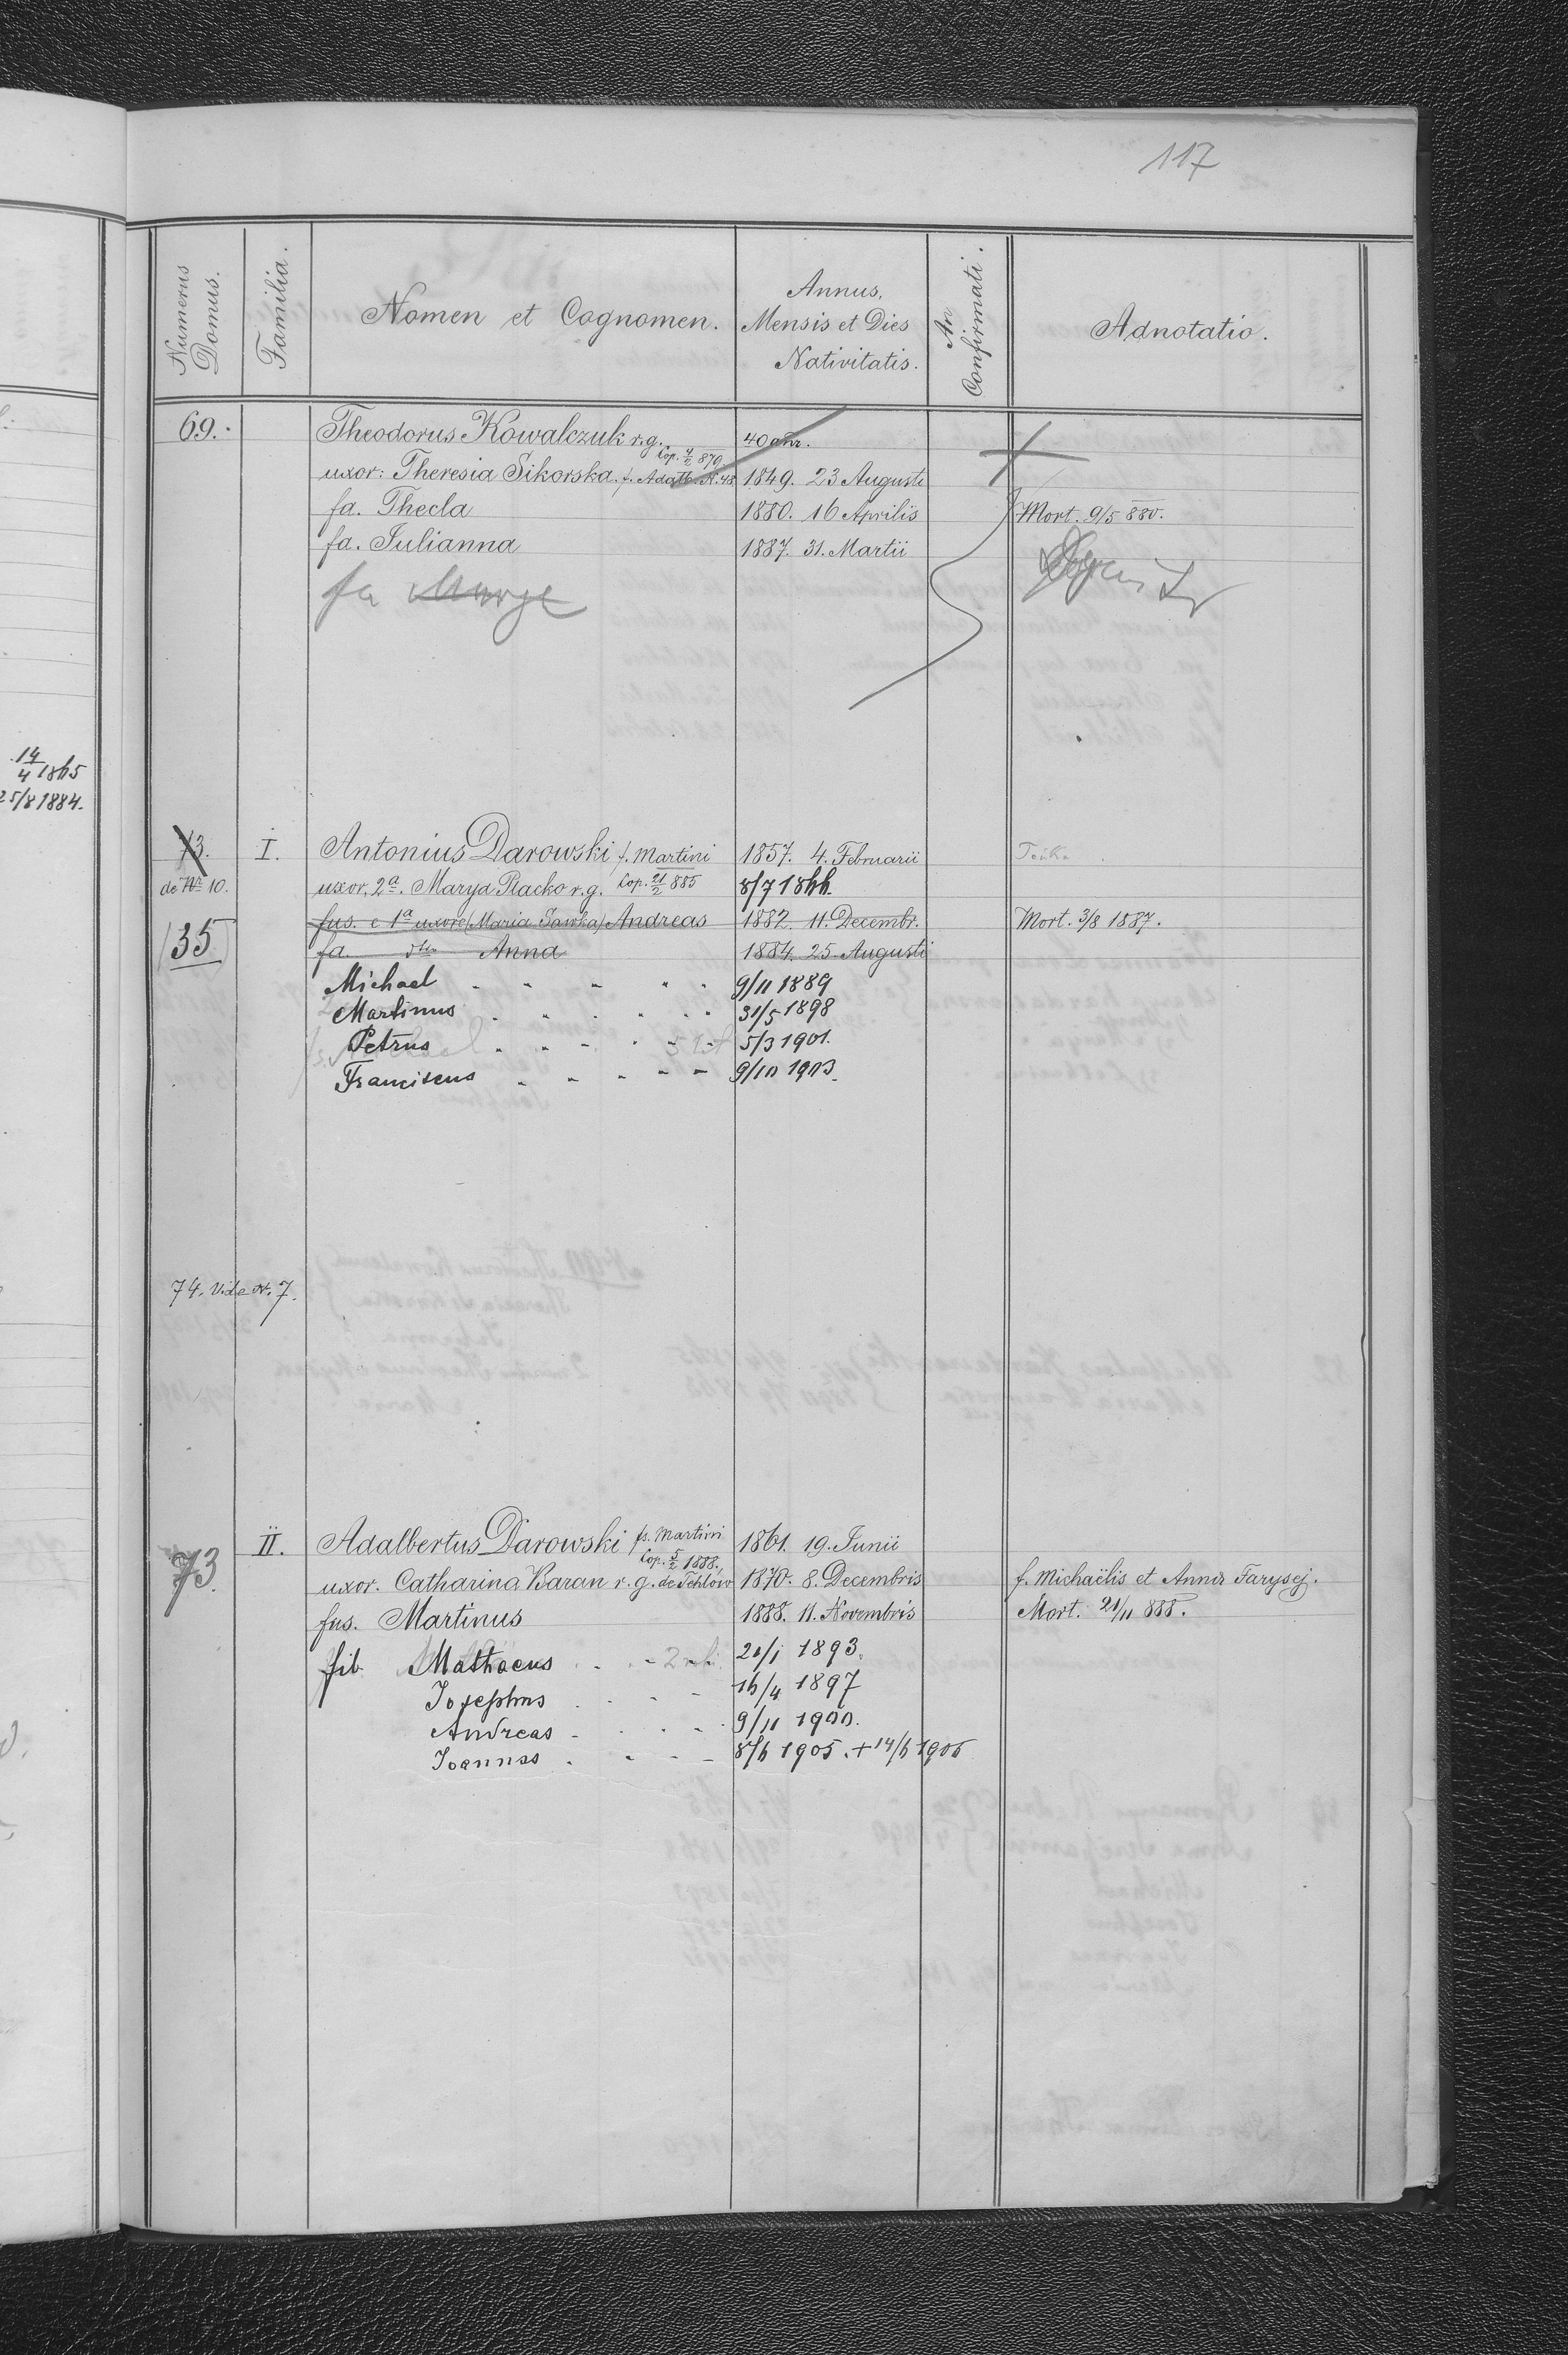 117
14/4 1865
25/8 1884.
Numerus Domus.
Familia.
Nomen et Cognomen.
Annus, Mensis et Dies Nativitatis.
An Confirmati.
Adnotatio.
69. Theodorus Kowalczuk r.g. 40 anr.
Cop. 4/2 879
uxor: Theresia Sikorska. f. Adalb. N. 48 1849. 23 Augusti
fa. Thecla 1880. 16 Aprilis Mort. 9/5 880.
fa. Julianna 1887. 31. Martii
fa
73. I. Antonius Darowski f. Martini 1857. 4. Februarii
de Nr 10. uxor. 2a. Marya Placko r.g. Cop. 21/2 885 8/7 1866.
fus. e 1a uxore (Maria Sawka) Andreas 1882. 11. Decembr. Mort. 3/8 1887.
35 fa. dtto Anna 1884. 25. Augusti
Michael 9/11 1889
Martinus 31/5 1898
Petrus 5/3 1901.
Franciscus 9/10 1903.
74. Vide N. 7.
73. II. Adalbertus Darowski fs. Martini 1861. 19. Junii
Cop. 5/2 1888.
uxor. Catharina Baran r. g. de Tehlow 1870. 8. Decembris f. Michaëlis et Anna Farysej.
fus. Martinus 1888. 11. Novembris Mort. 21/11 888.
fib Mathaeus 20/1 1893.
Josephus 16/4 1897
Andreas 9/11 1900.
Joannes 8/6 1905. + 14/6 1906